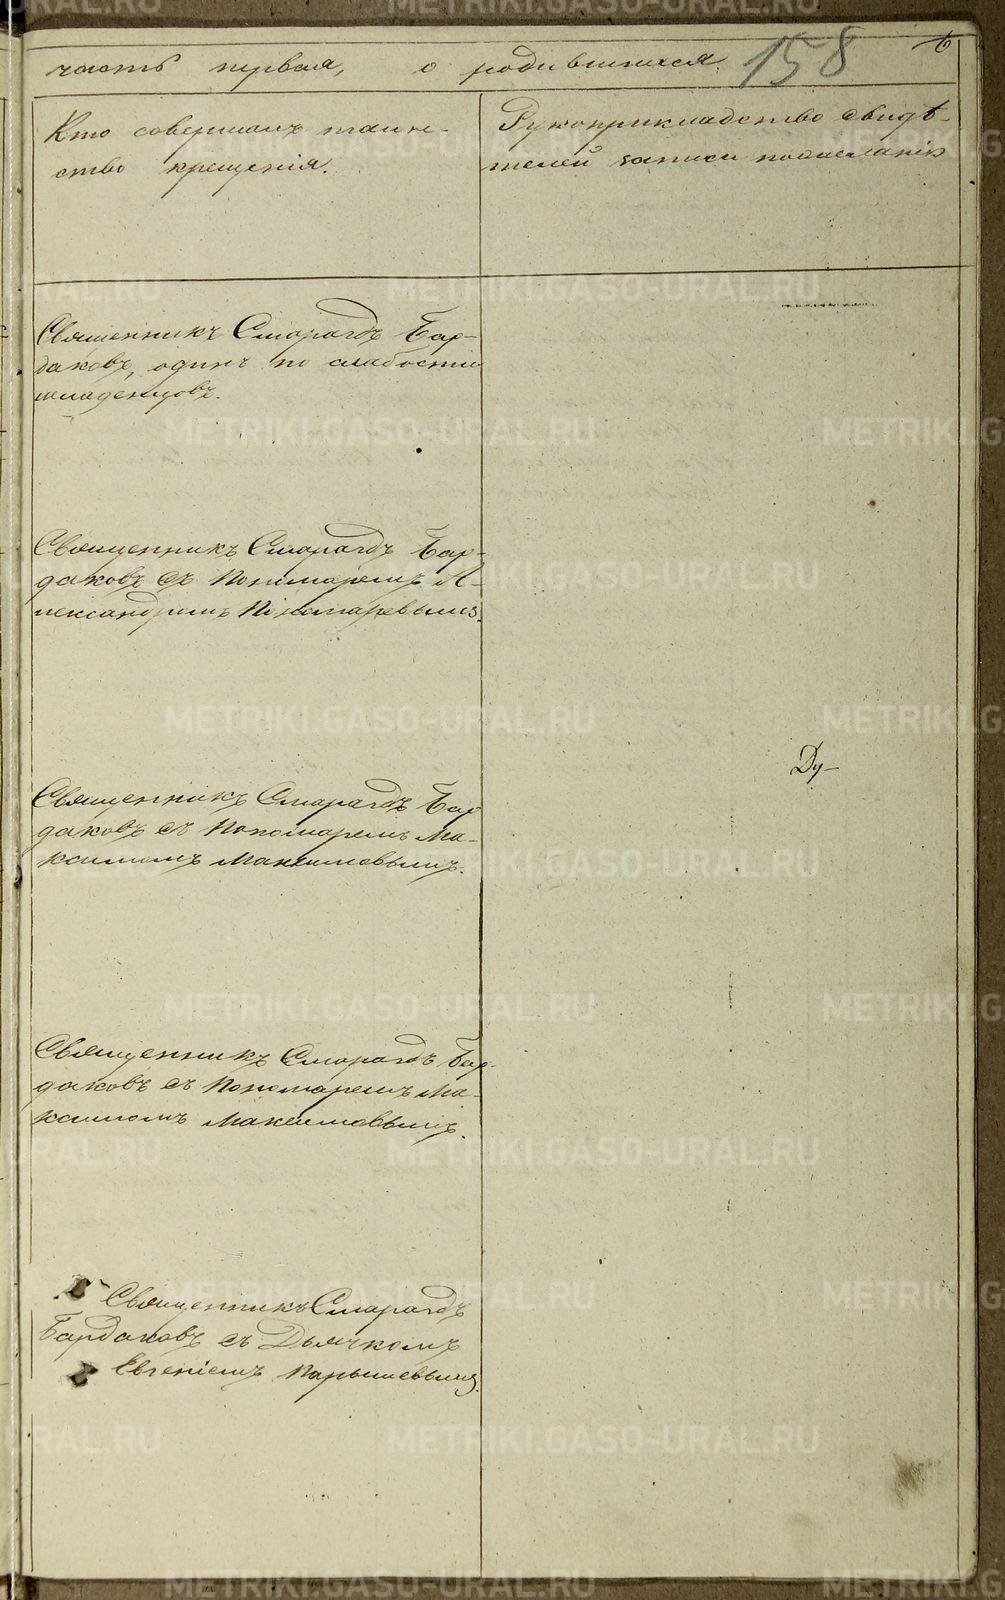 часть первая, о родившихся.
158
6
Кто совершалъ таин-
ство крещенія.
Рукоприкладство свидѣ-
телей записи по желанію
Священникъ Смарагдъ Бар-
даковъ, одинъ по слабости
младенцовъ.
Священникъ Смарагдъ Бар-
даковъ съ Пономаремъ А-
лександромъ Пономаревымъ.
Ду-
Священникъ Смарагдъ Бар
даковъ съ Пономаремъ Ма-
ксимомъ Максимовымъ.
Священникъ Смарагдъ Бар-
даковъ съ Пономаремъ Ма-
ксимомъ Максимовымъ.
Священникъ Смарагдъ
Бардаковъ съ Дьячкомъ
Евгеніемъ Парышевымъ.
METRIKI.GASO-URAL.RU